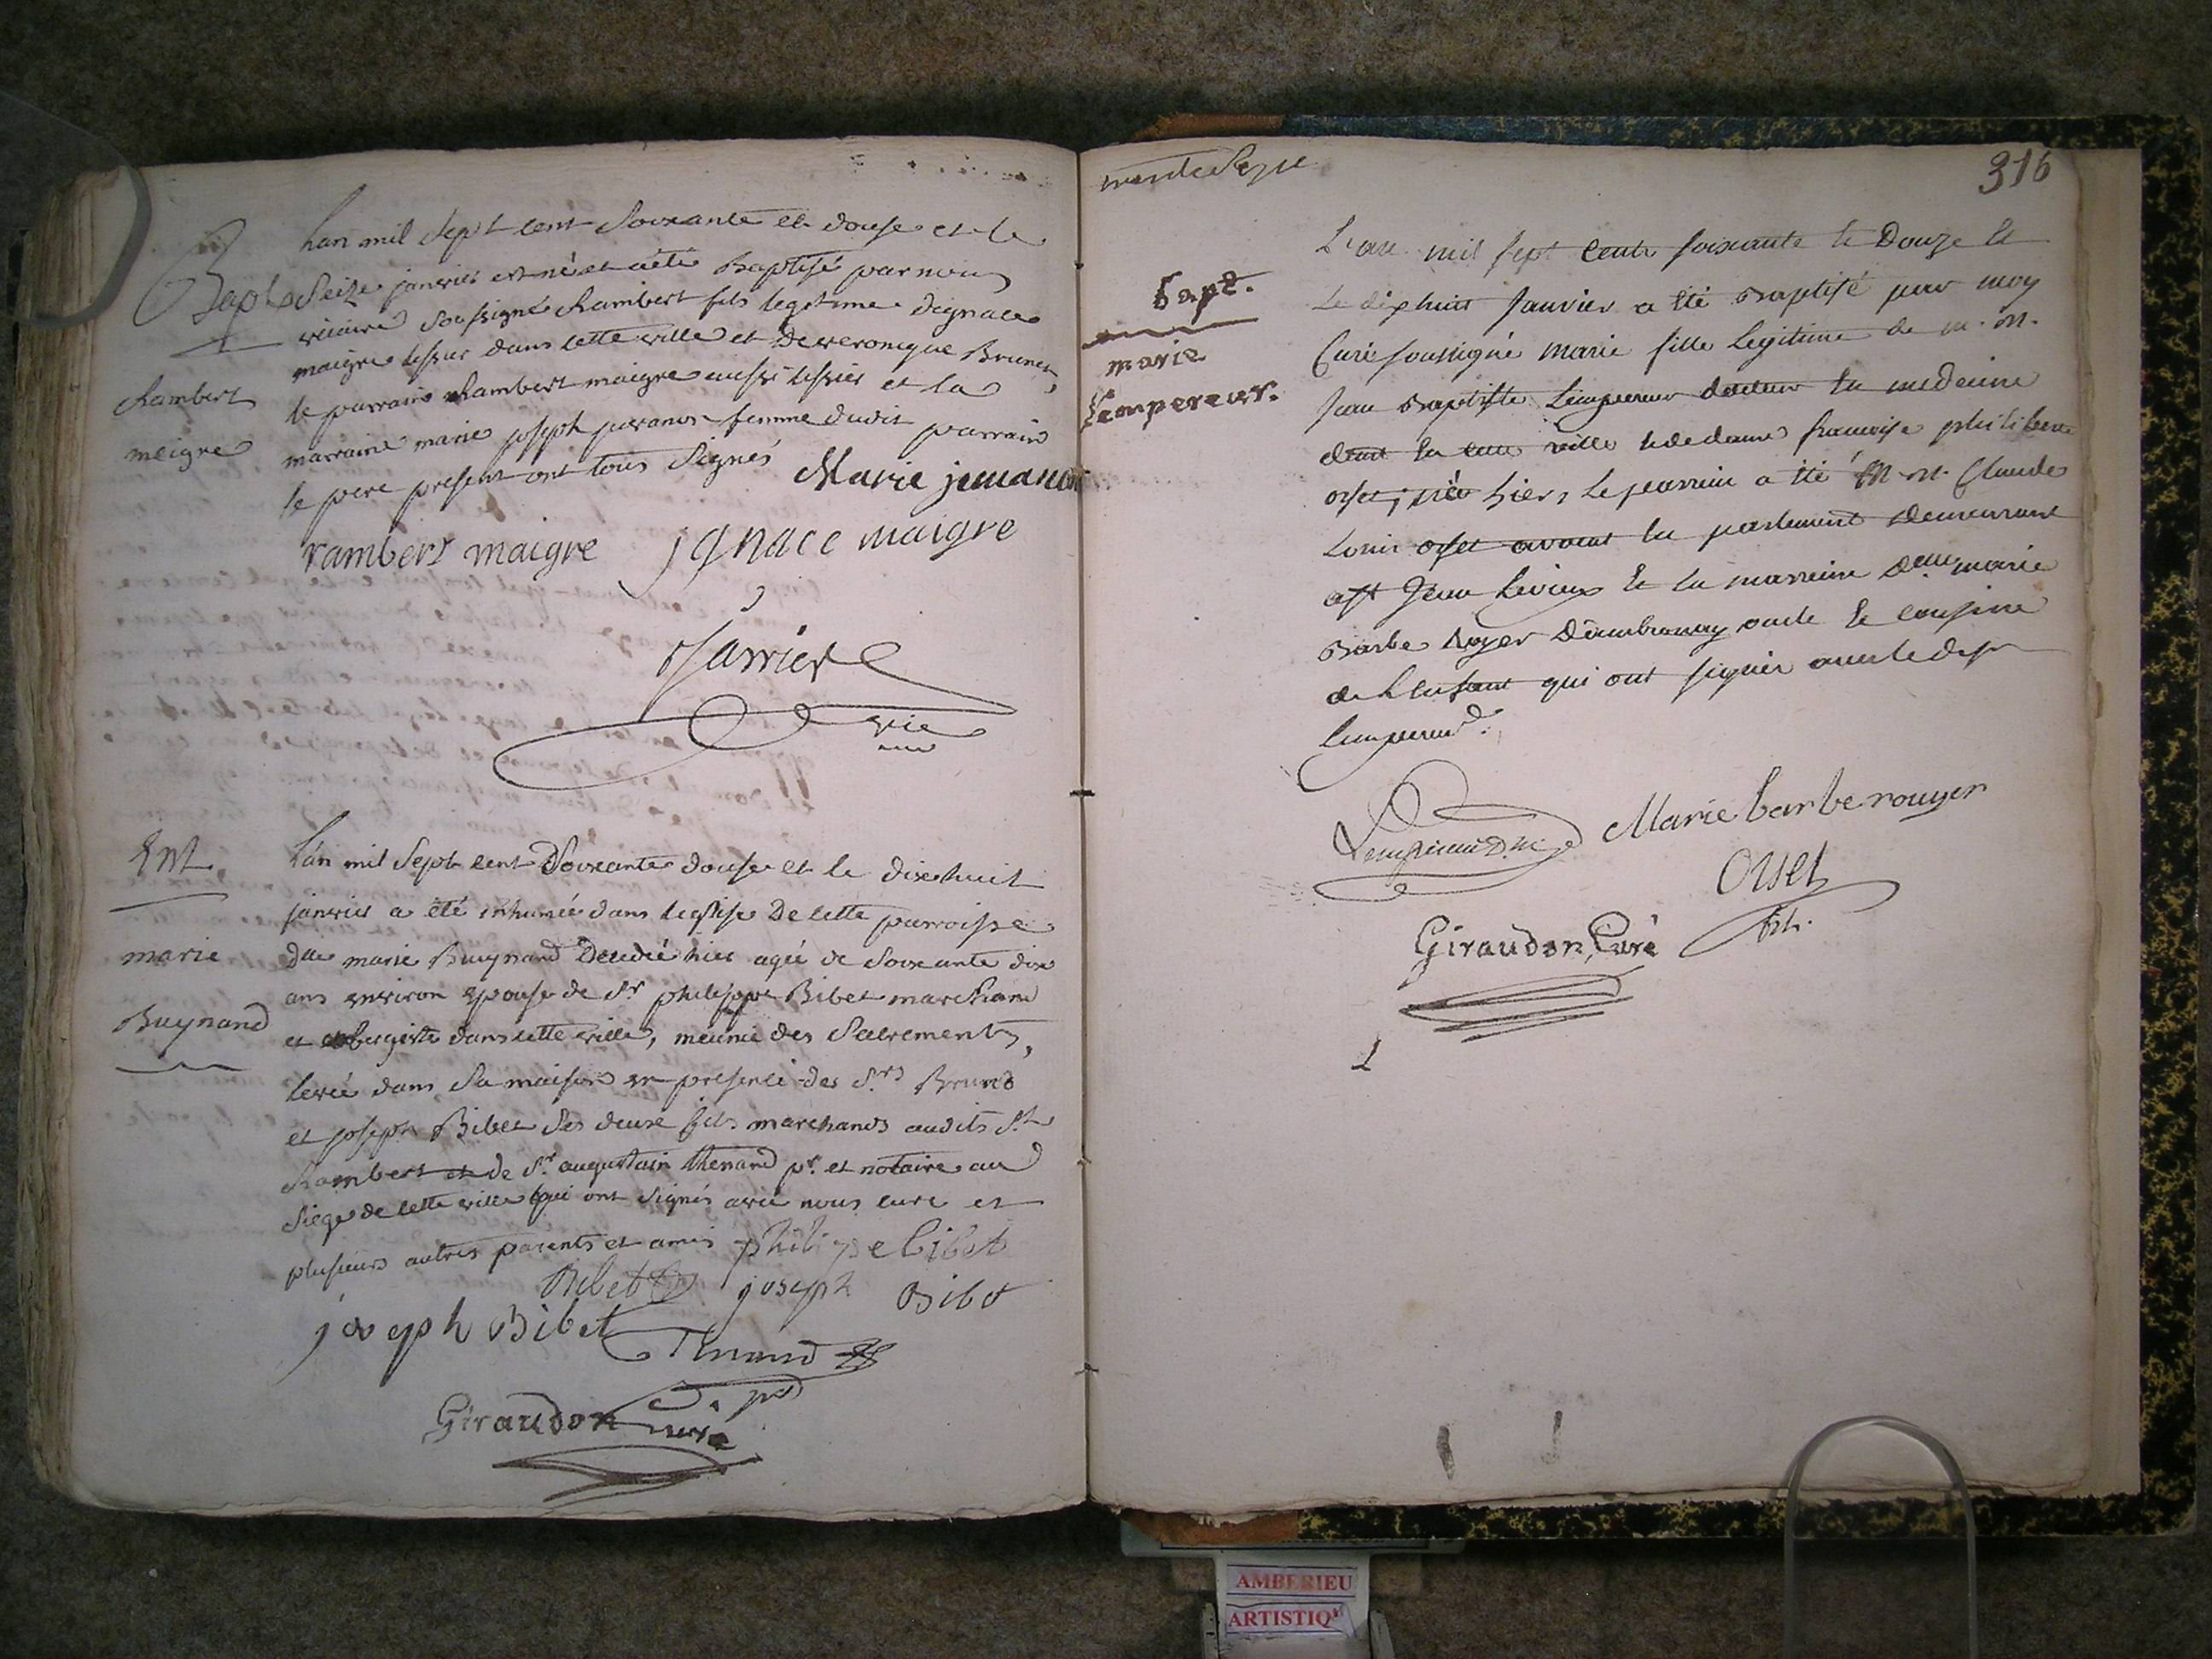 Bapt
Rambert
meigre
Lan mil Sept cent Soixante et douse et le
Seize janvier est né et a été Baptisé par nous
vicaire Soussigné Rambert fils legitime d'ignace
maigre tissier dans cette ville et De veronique Brunet,
le parrain Rambert maigre aussi tissier et la
marraine marie joseph juvanon femme dudit parrain
le pere present ont tous Signés Marie juvanon
rambert maigre ignace maigre
vic
Ent
marie
Buynand
Lan mil Sept cent Soixante douse et le dix huit
janvier a été inhumée dans leglise De cette parroisse
Dlle marie Buynand Decedée hier agée de Soixante dix
ans environ epouse de Sr philippe Bibet marchand
et aubergiste dans cette ville, meunie des Sacrements,
levée dans Sa maison en presence des Srs Bruno
et joseph Bibet Ses deux fils marchands audits St
Rambert et de Sr augustain thenard pr et notaire au
Siege de cette ville qui ont Signés avec nous curé et
plusieurs autres parents et amis philipe bibet
Bibet joseph Bibet
joseph Bibet
Thenard
Giraudon Curé
trente Seize
316
Bapt.
marie
Lempereur.
L'an mil sept cents soixante et Douze et
le dixhuit Janvier a été Baptisé par moy
Curé soussigné marie fille Legitime de m. M.
Jean Baptiste Lempereur docteur en medecine
dans cette ville et de dame francoise philiberte
orset, née hier, le parrain a été M M. Claude
Louis orset avocat en parlement demeurant
a St Jean le vieux et la marreine Delle marie
Barbe Royer D'ambronay oncle et cousine
de Lenfant qui ont signés avec le dr
Lempereur.
Lempereur D. M. Marie barbe rouyer
Orset
Giraudon, Curé
L
AMBERIEU
ARTISTIQ